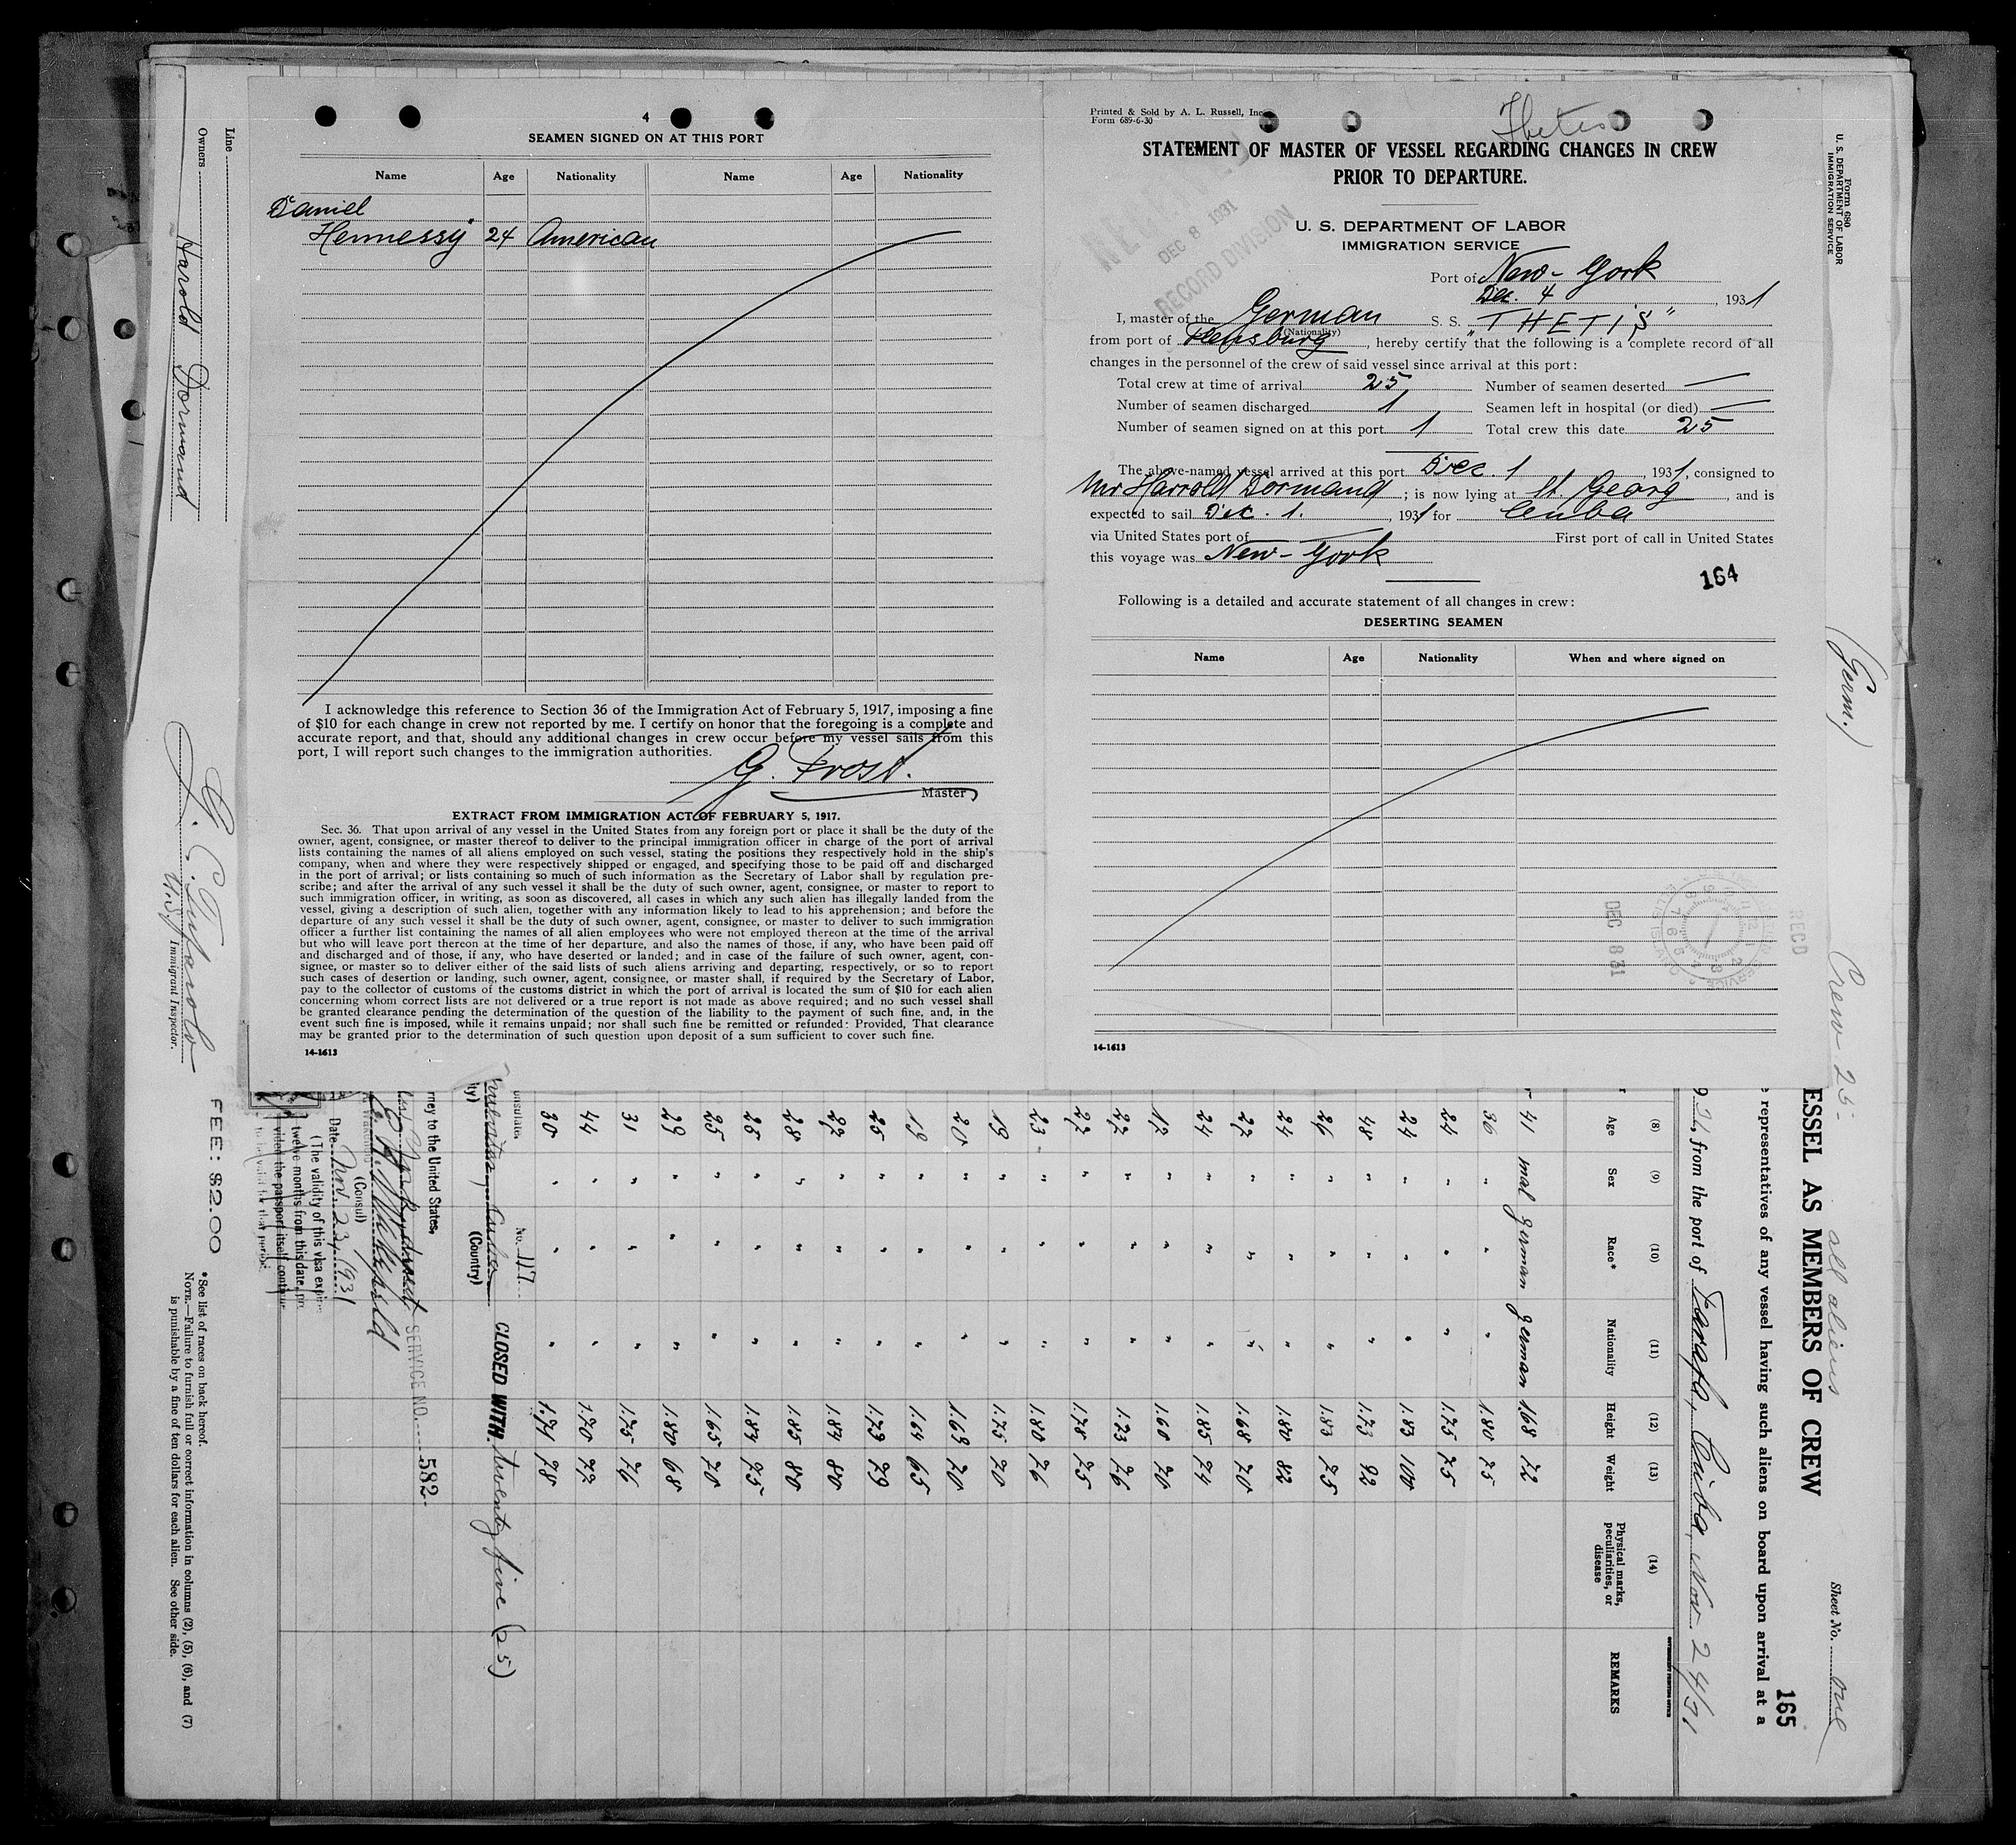 4
SEAMEN SIGNED ON AT THIS PORT
Name Age Nationality Name Age Nationality
Daniel
Hennessy 24 American
I acknowledge this reference to Section 36 of the Immigration Act of February 5, 1917, imposing a fine
of $10 for each change in crew not reported by me. I certify on honor that the foregoing is a complete and
accurate report, and that, should any additional changes in crew occur before my vessel sails from this
port, I will report such changes to the immigration authorities.
G. Frost.
Master
EXTRACT FROM IMMIGRATION ACT OF FEBRUARY 5, 1917.
Sec. 36. That upon arrival of any vessel in the United States from any foreign port or place it shall be the duty of the
owner, agent, consignee, or master thereof to deliver to the principal immigration officer in charge of the port of arrival
lists containing the names of all aliens employed on such vessel, stating the positions they respectively hold in the ship's
company, when and where they were respectively shipped or engaged, and specifying those to be paid off and discharged
in the port of arrival; or lists containing so much of such information as the Secretary of Labor shall by regulation pre-
scribe; and after the arrival of any such vessel it shall be the duty of such owner, agent, consignee, or master to report to
such immigration officer, in writing, as soon as discovered, all cases in which any such alien has illegally landed from the
vessel, giving a description of such alien, together with any information likely to lead to his apprehension; and before the
departure of any such vessel it shall be the duty of such owner, agent, consignee, or master to deliver to such immigration
officer a further list containing the names of all alien employees who were not employed thereon at the time of the arrival
but who will leave port thereon at the time of her departure, and also the names of those, if any, who have been paid off
and discharged and of those, if any, who have deserted or landed; and in case of the failure of such owner, agent, con-
signee, or master so to deliver either of the said lists of such aliens arriving and departing, respectively, or so to report
such cases of desertion or landing, such owner, agent, consignee, or master shall, if required by the Secretary of Labor,
pay to the collector of customs of the customs district in which the port of arrival is located the sum of $10 for each alien
concerning whom correct lists are not delivered or a true report is not made as above required; and no such vessel shall
be granted clearance pending the determination of the question of the liability to the payment of such fine, and, in the
event such fine is imposed, while it remains unpaid; nor shall such fine be remitted or refunded: Provided, That clearance
may be granted prior to the determination of such question upon deposit of a sum sufficient to cover such fine.
14-1613
Printed & Sold by A. L. Russell, Inc.
Form 689-6-30
Thetis
STATEMENT OF MASTER OF VESSEL REGARDING CHANGES IN CREW
PRIOR TO DEPARTURE.
DEC 8 1931
RECORD DIVISION
U. S. DEPARTMENT OF LABOR
IMMIGRATION SERVICE
Port of New-York
Dec. 4, 1931
I, master of the German S. S. "THETIS"
(Nationality)
from port of Flensburg, hereby certify that the following is a complete record of all
changes in the personnel of the crew of said vessel since arrival at this port:
Total crew at time of arrival 25 Number of seamen deserted —
Number of seamen discharged 1 Seamen left in hospital (or died) —
Number of seamen signed on at this port 1 Total crew this date 25
The above-named vessel arrived at this port Dec. 1, 1931, consigned to
Mr Harrold Dormand; is now lying at St. Georg, and is
expected to sail Dec. 1., 1931 for Cuba
via United States port of — First port of call in United States
this voyage was New-York
164
Following is a detailed and accurate statement of all changes in crew:
DESERTING SEAMEN
Name Age Nationality When and where signed on
RECD
DEC 8 31
14-1613
Form 680
U. S. DEPARTMENT OF LABOR
IMMIGRATION SERVICE
(Germ.) Crew 25- all aliens. Sheet No. one
ESSEL AS MEMBERS OF CREW
165
representatives of any vessel having such aliens on board upon arrival at a
31, from the port of Tarafa, Cuba, Nov. 24/31
(8) (9) (10) (11) (12) (13) (14)
Age Sex Race* Nationality Height Weight Physical marks, peculiarities, or disease REMARKS
41 mal german german 1.68 72
36 " " " 1.80 75
24 " " " 1.75 75
24 " " " 1.83 100
48 " " " 1.73 92
26 " " " 1.83 75
24 " " " 1.80 82
27 " " " 1.68 70
24 " " " 1.85 74
17 " " " 1.60 70
27 " " " 1.73 76
27 " " " 1.78 75
23 " " " 1.80 76
19 " " " 1.75 70
20 " " " 1.69 70
19 " " " 1.64 65
25 " " " 1.79 79
27 " " " 1.84 80
28 " " " 1.85 80
25 " " " 1.84 75
25 " " " 1.65 70
29 " " " 1.80 68
31 " " " 1.75 76
44 " " " 1.70 72
30 " " " 1.74 78
No. 117
CLOSED WITH twenty five (25)
Cuba
(Country)
rney to the United States,
SERVICE NO. 582-
(Consul)
Date Nov. 23, 1931
(The validity of this visa expir
twelve months from this date, pr
vided the passport itself contin
to be valid for that period.
FEE: $2.00
*See list of races on back hereof.
NOTE.—Failure to furnish full or correct information in columns (2), (5), (6), and (7)
is punishable by a fine of ten dollars for each alien. See other side.
Line
Owners Harold Dormand
U.S. Immigrant Inspector.